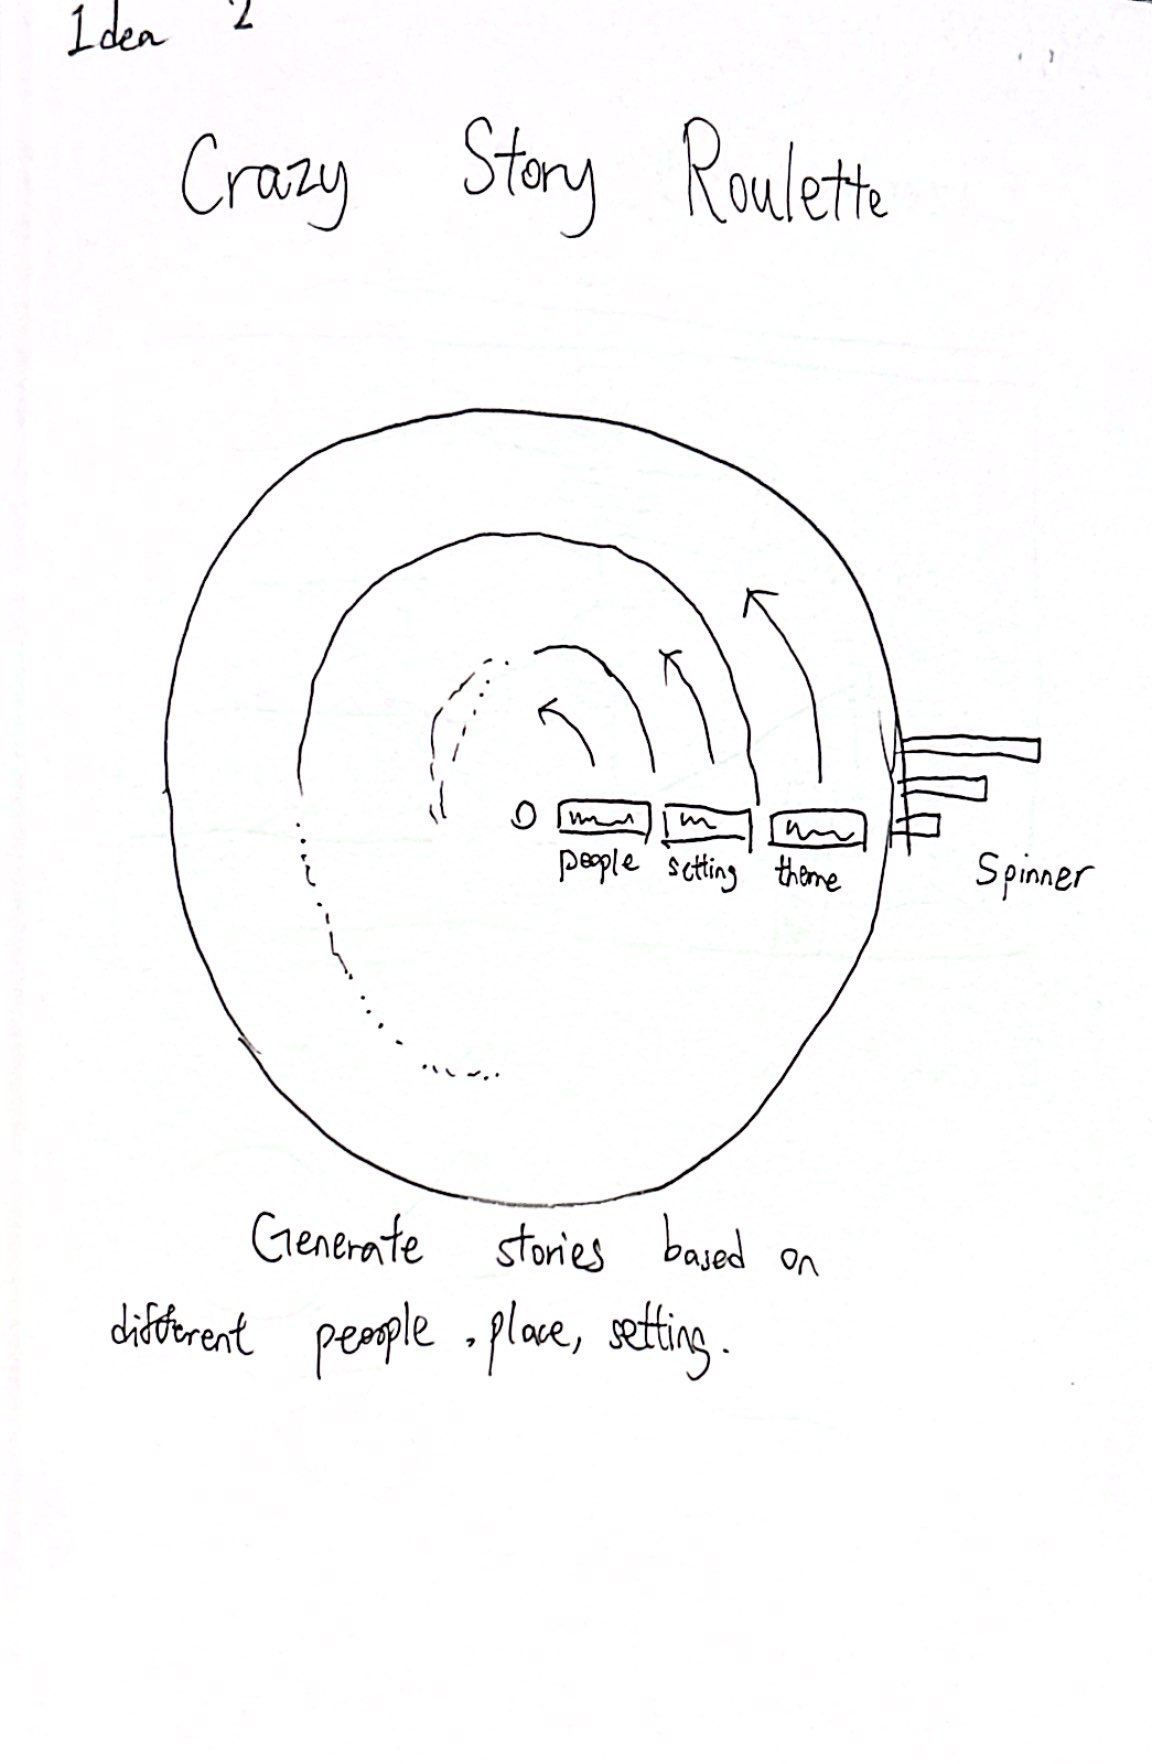 Idea 2
Crazy Story Roulette
people setting theme
Spinner
Generate stories based on
different people, place, setting.